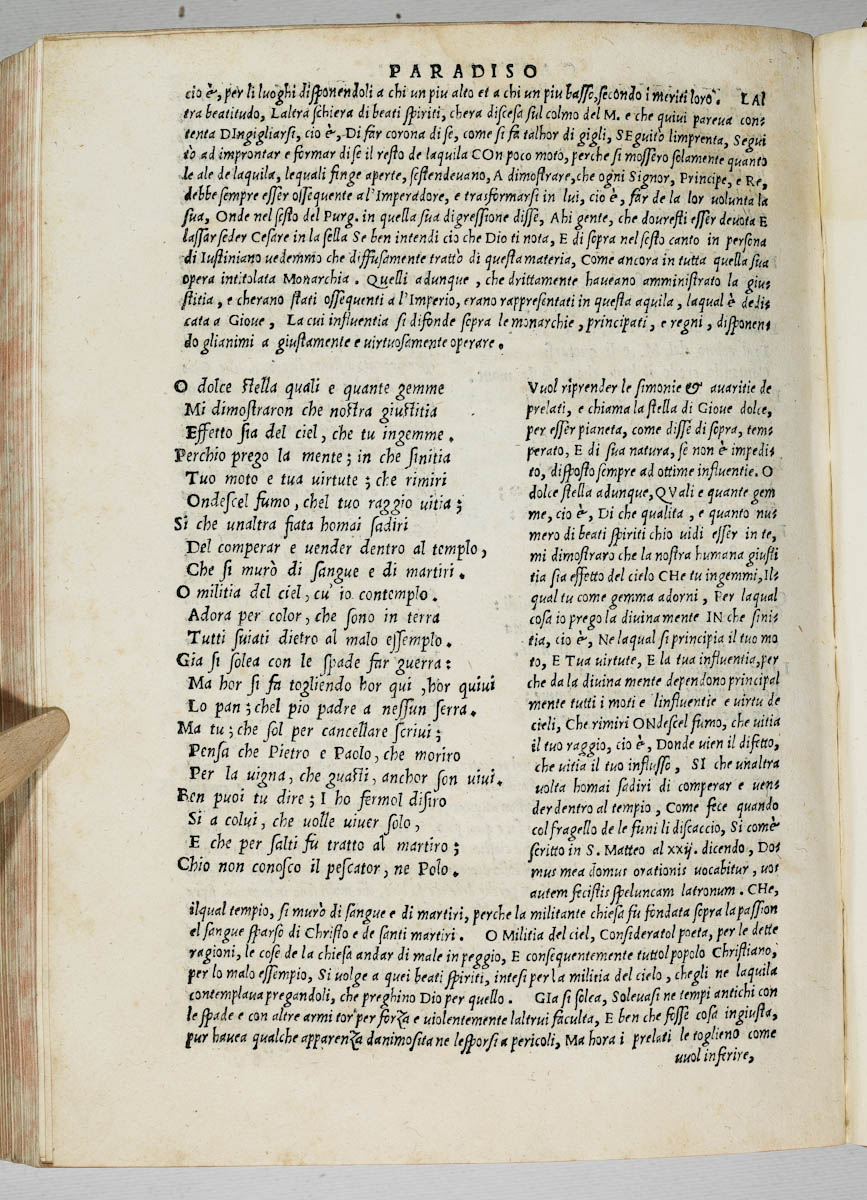 PARADISO
cio è, per li luoghi disponendoli a chi un piu alto et a chi un piu basso, secondo i meriti loro. LAl
tra beatitudo, Laltra schiera di beati spiriti, chera discesa sul colmo del M. e che quivi pareva con=
tenta DIngigliarsi, cio è, Di far corona di se, come si fa talhor di gigli, SEguitò limprenta, Segui
tò ad improntar e formar di se il resto de laquila COn poco moto, perche si mossero solamente quanto
le ale de laquila, lequali finge aperte, sestendevano, A dimostrare, che ogni Signor, Principe, e Re,
debbe sempre esser ossequente a l'Imperadore, e trasformarsi in lui, cio è, far de la lor volunta la
sua, Onde nel sesto del Purg. in quella sua digressione disse, Ahi gente, che douresti esser deuota E
lassar seder Cesare in la sella Se ben intendi cio che Dio ti nota, E di sopra nel sesto canto in persona
di Iustiniano uedemmo che diffusamente trattò di questa materia, Come ancora in tutta quella sua
opera intitolata Monarchia. Quelli adunque, che drittamente haueano amministrato la gius=
titia, e cherano stati ossequenti a l'Imperio, erano rappresentati in questa aquila, laqual è dedi=
cata a Gioue, La cui influentia si difonde sopra le monarchie, principati, e regni, disponen=
do glianimi a giustamente e uirtuosamente operare.
O dolce stella quali e quante gemme
Mi dimostraron che nostra giustitia
Effetto sia del ciel, che tu ingemme.
Perchio prego la mente; in che sinitia
Tuo moto e tua uirtute; che rimiri
Ondescel fumo, chel tuo raggio uitia;
Si che unaltra fiata homai sadiri
Del comperar e uender dentro al templo,
Che si murò di sangue e di martiri.
O militia del ciel, cu' io contemplo.
Adora per color, che sono in terra
Tutti suiati dietro al malo essemplo.
Gia si solea con le spade far guerra:
Ma hor si fa togliendo hor qui, hor quiui
Lo pan; chel pio padre a nessun serra.
Ma tu; che sol per cancellare scriui;
Pensa che Pietro e Paolo, che moriro
Per la uigna, che guasti, anchor son uiui.
Ben puoi tu dire; I ho fermol disiro
Si a colui, che uolle uiuer solo,
E che per salti fù tratto al martiro;
Chio non conosco il pescator, ne Polo.
Vuol riprender le simonie & auaritie de
prelati, e chiama la stella di Gioue dolce,
per esser pianeta, come disse di sopra, tem=
perato, E di sua natura, se non è impedi=
to, disposto sempre ad ottime influentie. O
dolce stella adunque, QVali e quante gem
me, cio è, Di che qualita, e quanto nu=
mero di beati spiriti chio uidi esser in te,
mi dimostraro che la nostra humana giusti
tia sia effetto del cielo CHe tu ingemmi, Il=
qual tu come gemma adorni, Per laqual
cosa io prego la diuina mente IN che sini=
tia, cio è, Ne laqual si principia il tuo mo
to, E Tua uirtute, E la tua influentia, per
che da la diuina mente dependono principal
mente tutti i moti e linfluentie e uirtu de
cieli, Che rimiri ONdescel fumo, che uitia
il tuo raggio, cio è, Donde uien il difetto,
che uitia il tuo influsso, SI che unaltra
uolta homai sadiri di comperar e uen=
der dentro al tempio, Come fece quando
col fragello de le funi li discaccio, Si com'è
scritto in S. Matteo al xxij. dicendo, Do=
mus mea domus orationis uocabitur, uos
autem fecistis speluncam latronum. CHe,
ilqual tempio, si murò di sangue e di martiri, perche la militante chiesa fu fondata sopra la passion
el sangue sparso di Christo e de santi martiri. O Militia del ciel, Consideratol poeta, per le dette
ragioni, le cose de la chiesa andar di male in peggio, E consequentemente tuttol popolo Christiano,
per lo malo essempio, Si uolge a quei beati spiriti, intesi per la militia del cielo, chegli ne laquila
contemplaua pregandoli, che preghino Dio per quello. GIa si solea, Soleuasi ne tempi antichi con
le spade e con altre armi tor per forza e uiolentemente laltrui faculta, E ben che fosse cosa ingiusta,
pur hauea qualche apparenza danimosita ne lesporsi a pericoli, Ma hora i prelati le toglieno come
uuol inferire,